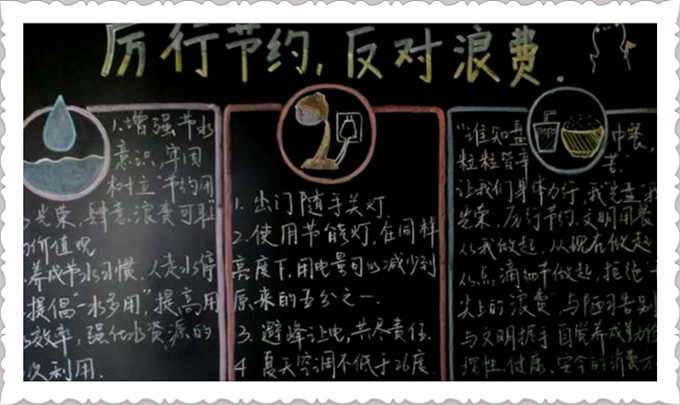 厉行节约,反对浪费.
1.增强节水
意识,牢固
树立"节约用
水光荣,肆意浪费可耻"
的价值观
养成节水习惯,人走水停
提倡"一水多用",提高用
水效率,强化水资源的
次利用.
1.出门随手关灯.
2.使用节能灯,在同样
亮度下,用电量可以减少到
原来的五分之一.
3.避峰让电,共尽责任.
4.夏天空调不低于26度.
"谁知盘中餐,
粒粒皆辛苦"
让我们身体力行,我光盘我
光荣,厉行节约,文明用餐
从我做起,从现在做起
从点滴细节做起,拒绝"舌
尖上的浪费",与陋习告别
与文明握手,自觉养成
理性、健康、安全的消费方